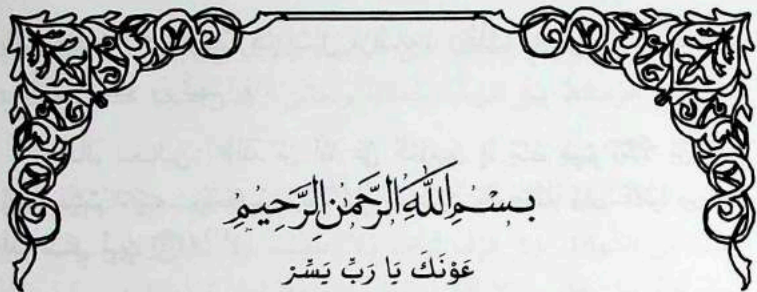 بِسْمِ اللَّهِ الرَّحْمَنِ الرَّحِيمِ
عَوْنَكَ يَا رَبِّ يَسِّرْ